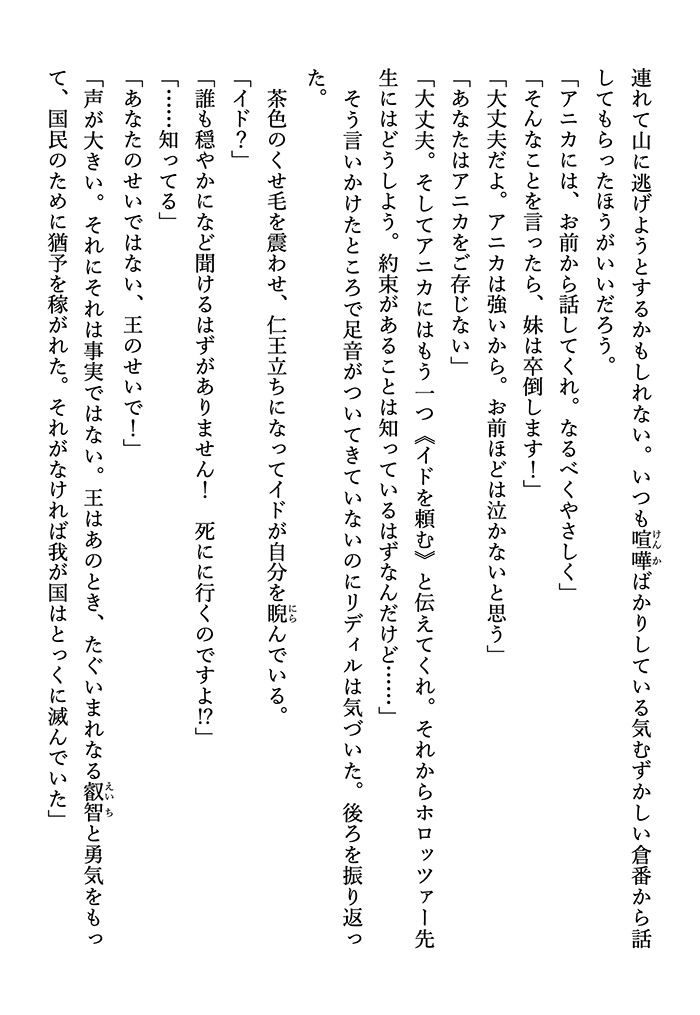 連れて山に逃げようとするかもしれない。いつも喧嘩ばかりしている気むずかしい倉番から話
してもらったほうがいいだろう。
「アニカには、お前から話してくれ。なるべくやさしく」
「そんなことを言ったら、妹は卒倒します！」
「大丈夫だよ。アニカは強いから。お前ほどは泣かないと思う」
「あなたはアニカをご存じない」
「大丈夫。そしてアニカにはもう一つ《イドを頼む》と伝えてくれ。それからホロッツァー先
生にはどうしよう。約束があることは知っているはずなんだけど……」
そう言いかけたところで足音がついてきていないのにリディルは気づいた。後ろを振り返っ
た。
茶色のくせ毛を震わせ、仁王立ちになってイドが自分を睨んでいる。
「イド？」
「誰も穏やかになど聞けるはずがありません！　死にに行くのですよ!?」
「……知ってる」
「あなたのせいではない、王のせいで！」
「声が大きい。それにそれは事実ではない。王はあのとき、たぐいまれなる叡智と勇気をもっ
て、国民のために猶予を稼がれた。それがなければ我が国はとっくに滅んでいた」
けんか
にら
えいち